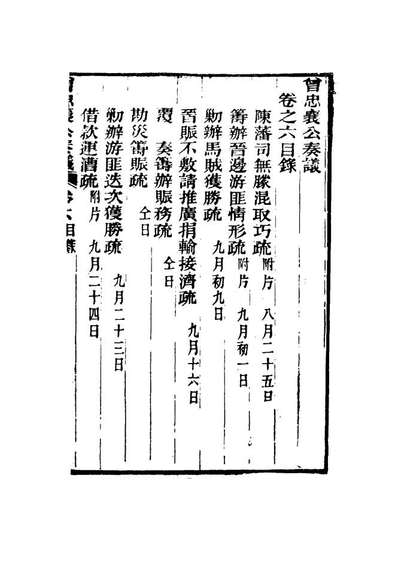 曾忠襄公奏議
卷之六目錄
陳藩司無朦混取巧疏 附片 八月二十五日
籌辦晉邊游匪情形疏 附片 九月初一日
勦辦馬賊獲勝疏 九月初九日
晉賑不敷請推廣捐輸接濟疏 九月十六日
覆 奏籌辦賑務疏 仝日
勘災籌賑疏 仝日
勦辦游匪迭次獲勝疏 九月二十三日
借款運漕疏 附片 九月二十四日
曾忠襄公奏議 卷六目錄